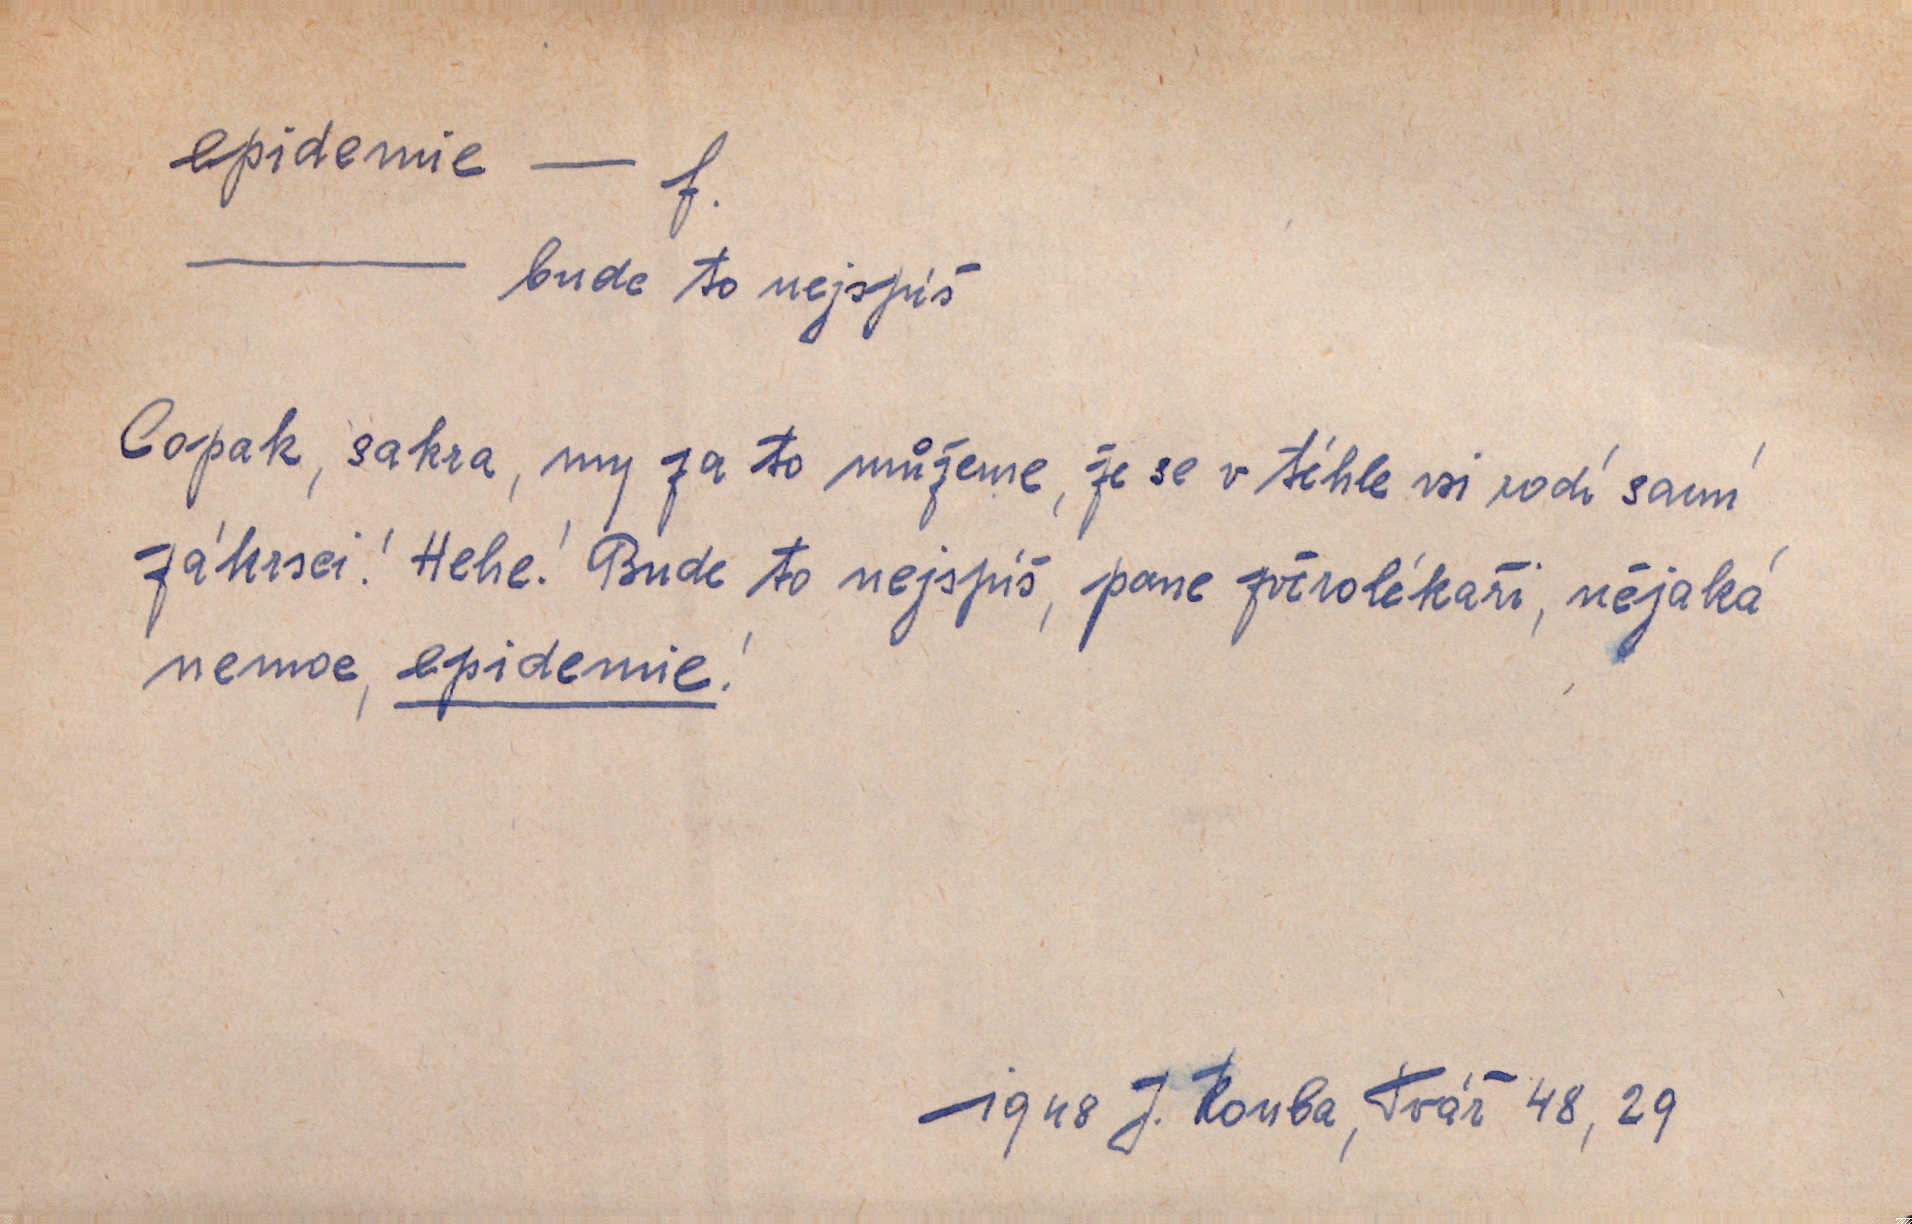 epidemie — f.
——— bude to nejspíš
Copak, sakra, my za to můžeme, že se v téhle vsi rodí samí
zákrsci! Hehe! Bude to nejspíš, pane zvěrolékaři, nějaká
nemoc, epidemie!
1948 J. Kouba, Tvář 48, 29